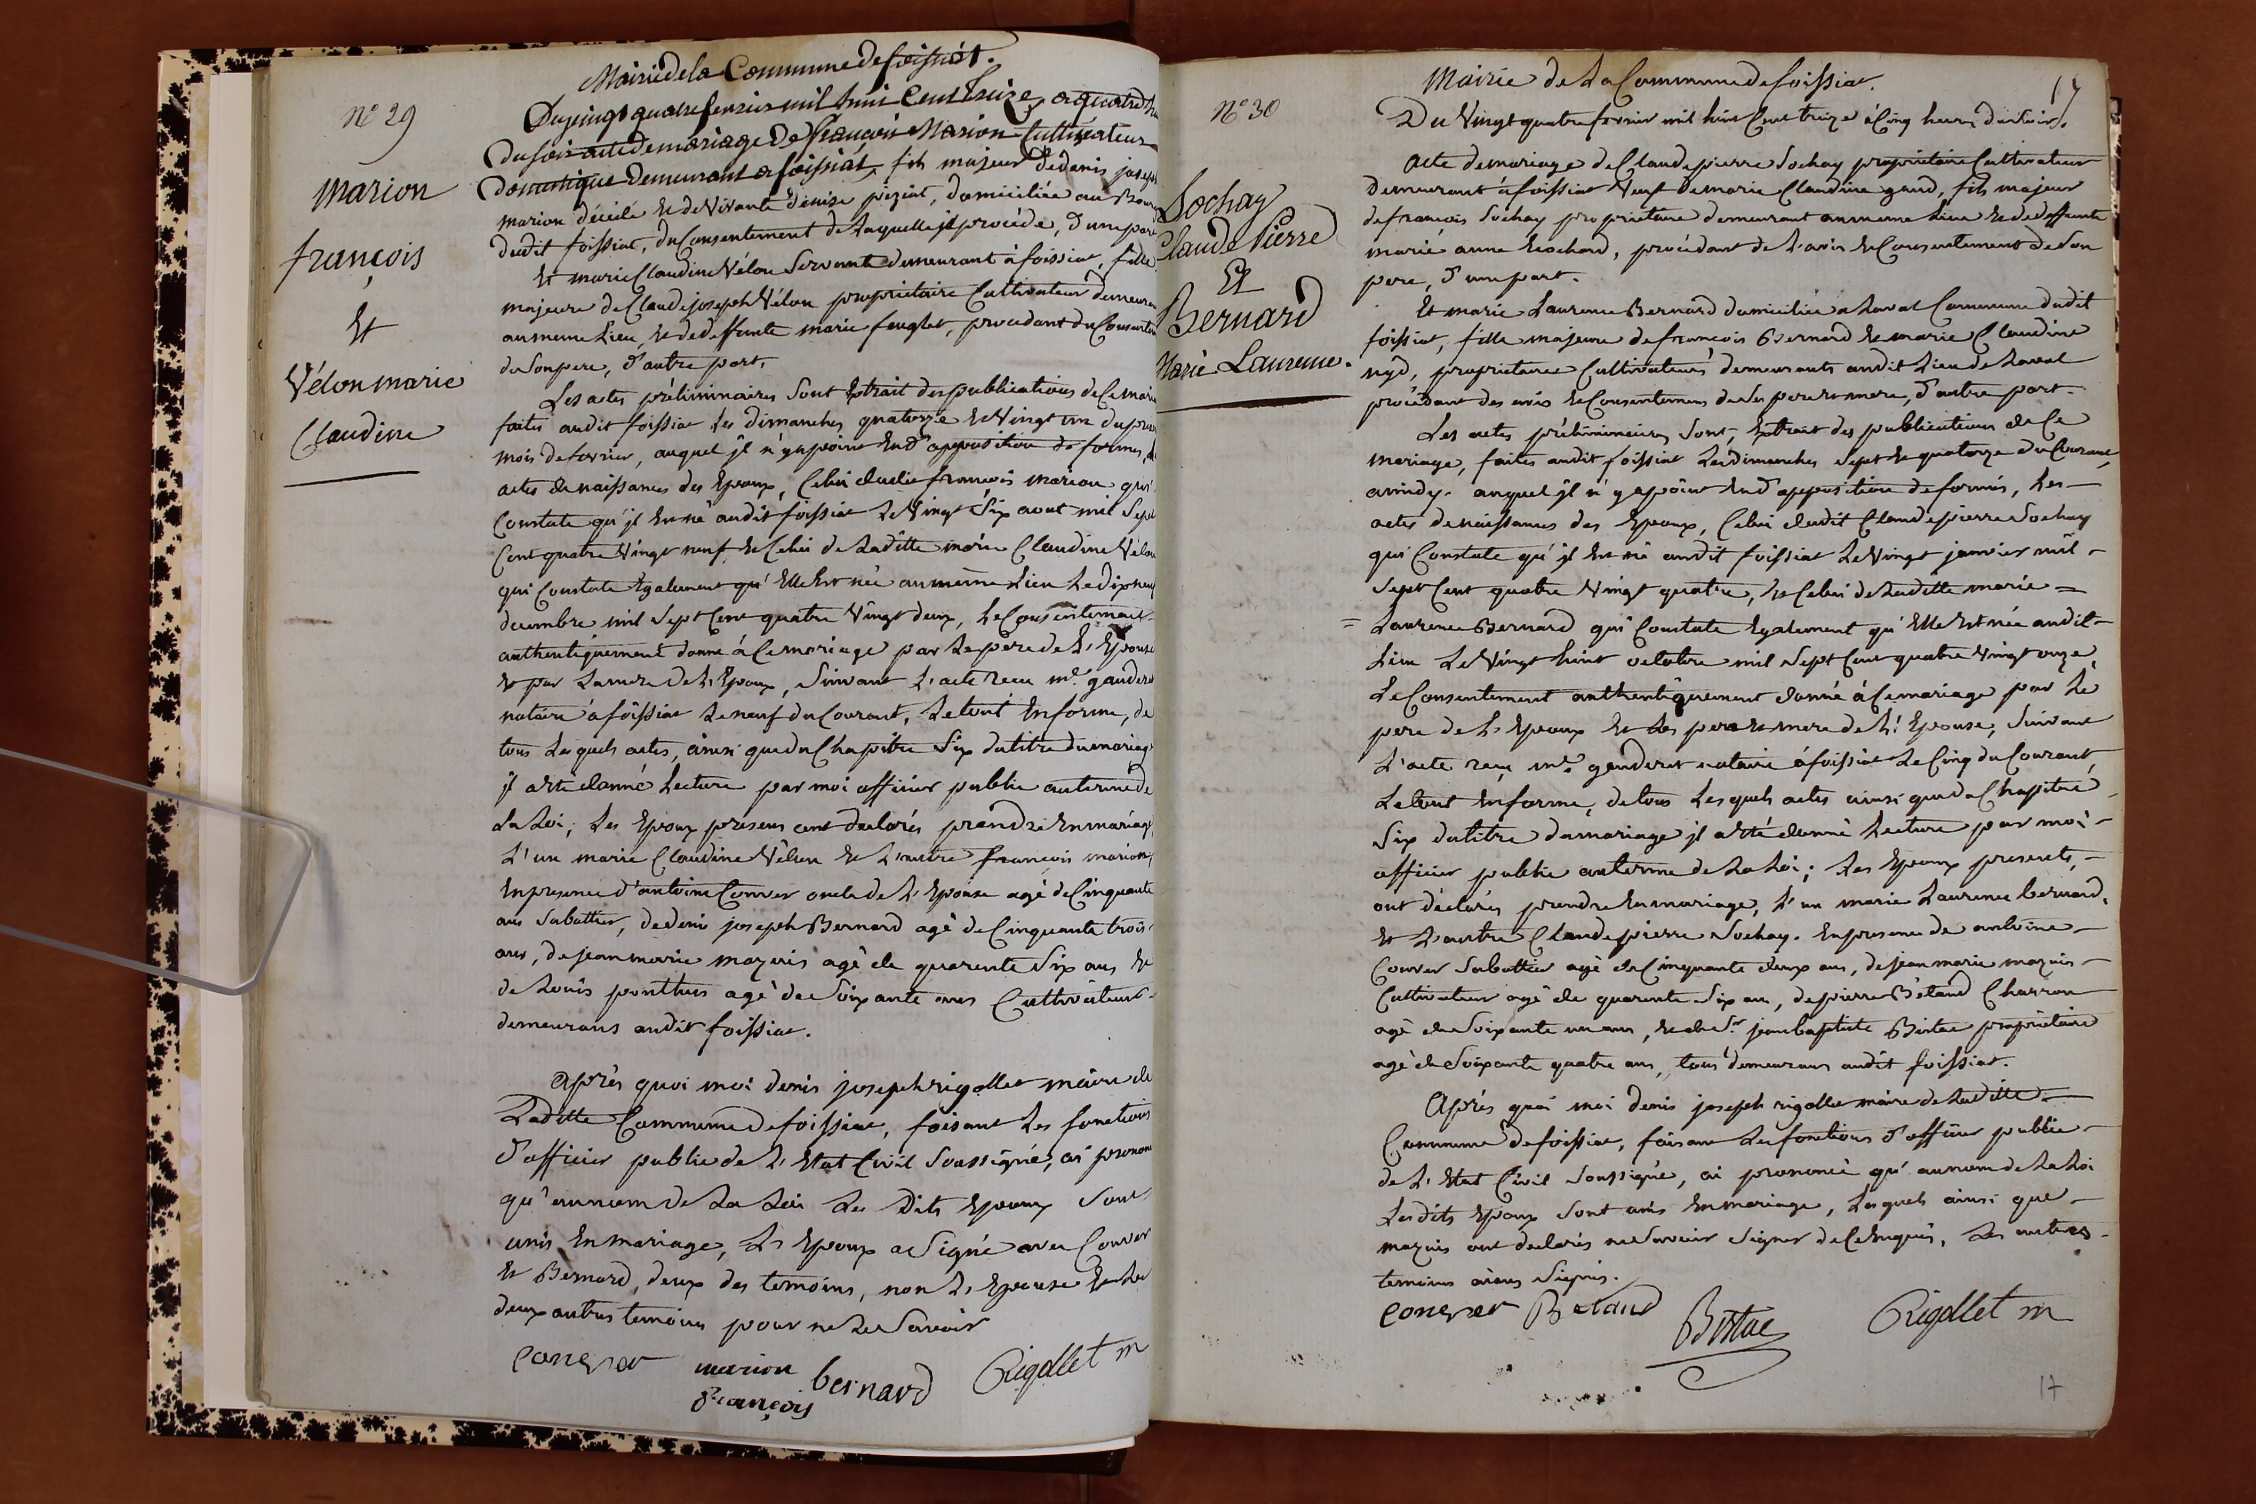 Mairie de la Commune de foissiat.
N.º 29
Du vingt quatre fevrier mil huit Cent treize, a quatre
du soir acte de mariage de françois Marion Cultivateur
Domestique Demeurant a foissiat, fils majeur de denis joseph
marion décédé et de vivante denise piziat, domiciliée au Bourg
dudit foissiat, du Consentement de laquelle jl procéde, d'une part
Et marie Claudine Vélon Servante demeurant à foissiat, fille
majeure de Claude joseph Vélon proprietaire Cultivateur demeurant
au meme Lieu, et de deffunte marie feuglet, procedant du Consentem
de Son pere, d'autre part.
Marion
françois
Et
Vélon marie
Claudine
Les actes préliminaires Sont Extrait des publications de Ce mari
faites audit foissiat les dimanches quatorze et Vingt un du pres
mois de fevrier, auquel jl n'y a point Eu d'opposition de formes, les
actes de naissances des Epoux, Celui dudit françois Marion qui
Constate qu'jl Est né audit foissiat Le Vingt Six aout mil Sept
Cent quatre Vingt neuf Et Celui de Laditte marie Claudine Vélon
qui Constate Egalement qu'Elle Est née au même Lieu Le dix neuf
decembre mil Sept Cent quatre Vingt deux, Le Consentement
authentiquement donné à Ce mariage par Le pere de L'Epouse
et par La mere de L'Epoux, Suivant L'acte recu m.e gauderet
notaire à foissiat Le neuf du Courant, Le tout En forme, de
tous Lesquels actes, ainsi que du Chapitre Six du titre du mariage
jl a Eté donné Lecture par moi officier public au terme de
La Loi; Les Epoux presens ont declarés prendre En mariage
L'un marie Claudine Vélon Et L'autre françois marion,
En presence d'antoine Conver oncle de L'Epouse agé de Cinquante
ans Sabattier, de denis joseph Bernard agé de Cinquante trois
ans, de jean marie mazuis agé de quarente Six ans Et
de Louis ponthus agé de Soixante ans Cultivateurs
demeurans audit foissiat.
Après quoi moi denis joseph rigollet maire de
Laditte Commune de foissiat, faisant Les fonctions
d'officier public de L'Etat Civil Soussigné, ai prononcé
qu'au nom de La Loi Les Dits Epoux Sont
unis En mariage, L'Epoux a Signé avec Conver
Et Bernard, deux des temoins, non L'Epouse Et Les
deux autres temoins pour ne Le Savoir
conver marion françois bernard Rigollet m
Mairie de La Commune de foissiat.
17
N.º 30
Du Vingt quatre fevrier mil huit Cent treize à Cinq heures du Soir.
Acte de mariage de Claude pierre Sochay proprietaire Cultivateur
demeurant à foissiat Veuf de marie Claudine gaud, fils majeur
de françois Sochay proprietaire demeurant au meme Lieu Et de deffunte
marie anne Rochard, procédant de L'avis Et Consentement de Son
pere, d'une part.
Sochay
Claude Pierre
Et
Bernard
Marie Laurence.
Et marie Laurence Bernard domiciliée a Laval Commune dudit
foissiat, fille majeure de françois Bernard Et marie Claudine
nyd, proprietaires Cultivateurs demeurants audit Lieu de Laval
procédant des avis Et Consentemens de Ses pere Et mere, d'autre part.
Les actes préliminaires Sont, Extrait des publications de Ce
mariage, faites audit foissiat Les dimanches Sept Et quatorze du Courant,
a midy. auquel jl n'y a point Eu d'opposition de formés, Les
actes de naissances des Epoux, Celui dudit Claude pierre Sochay
qui Constate qu'jl Est né audit foissiat Le Vingt janvier mil
Sept Cent quatre Vingt quatre, Et Celui de Laditte marie =
= Laurence Bernard qui Constate Egalement qu'Elle Est née audit
Lieu Le Vingt huit octobre mil Sept Cent quatre Vingt onze,
Le Consentement authentiquement donné à Ce mariage par Le
pere de L'Epoux Et Les pere Et mere de L'Epouse, Suivant
L'acte reçu m.e gauderet notaire à foissiat Le Cinq du Courant,
Le tout En forme, de tous Lesquels actes ainsi que du Chapitre
Six du titre du mariage jl a Eté donné Lecture par moi
officier public au terme de La Loi; Les Epoux presents,
ont déclarés prendre En mariage, L'un marie Laurence bernard,
Et L'autre Claude pierre Sochay. En presence de antoine
Conver Sabattier agé de Cinquante deux ans, de jean marie mazuis
Cultivateur agé de quarente Six ans, de pierre Bétand Charron
agé de Soixante un ans, Et de S.r jean baptiste Bistac proprietaire
agé de Soixante quatre ans, tous demeurans audit foissiat.
Après quoi moi denis joseph rigollet maire de Laditte
Commune de foissiat, faisant Les fonctions d'officier public
de L'Etat Civil Soussigné, ai prononcé qu'au nom de La Loi
Lesdits Epoux Sont unis En mariage, Lesquels ainsi que
mazuis ont declarés ne Savoir Signer de Ce Enquis, Les autres
temoins aians Signés.
conver Betaud Bistac Rigollet m
17